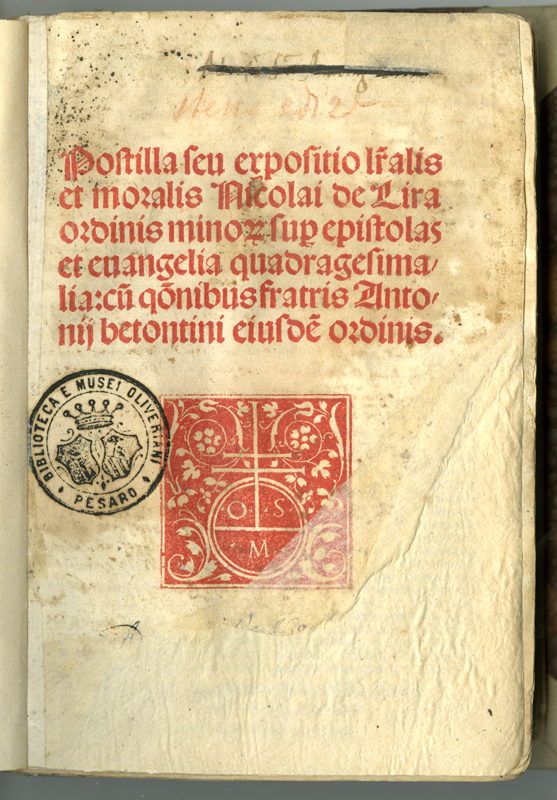 Postilla seu expositio lr̃alis
et moralis Nicolai de Lira
ordinis minoꝝ sup epistolas
et euangelia quadragesima/
lia: cũ qõnibus fratris Anto/
nij betontini eiusdẽ ordinis.
BIBLIOTECA E MUSEI OLIVERIANI
PESARO
O S
M